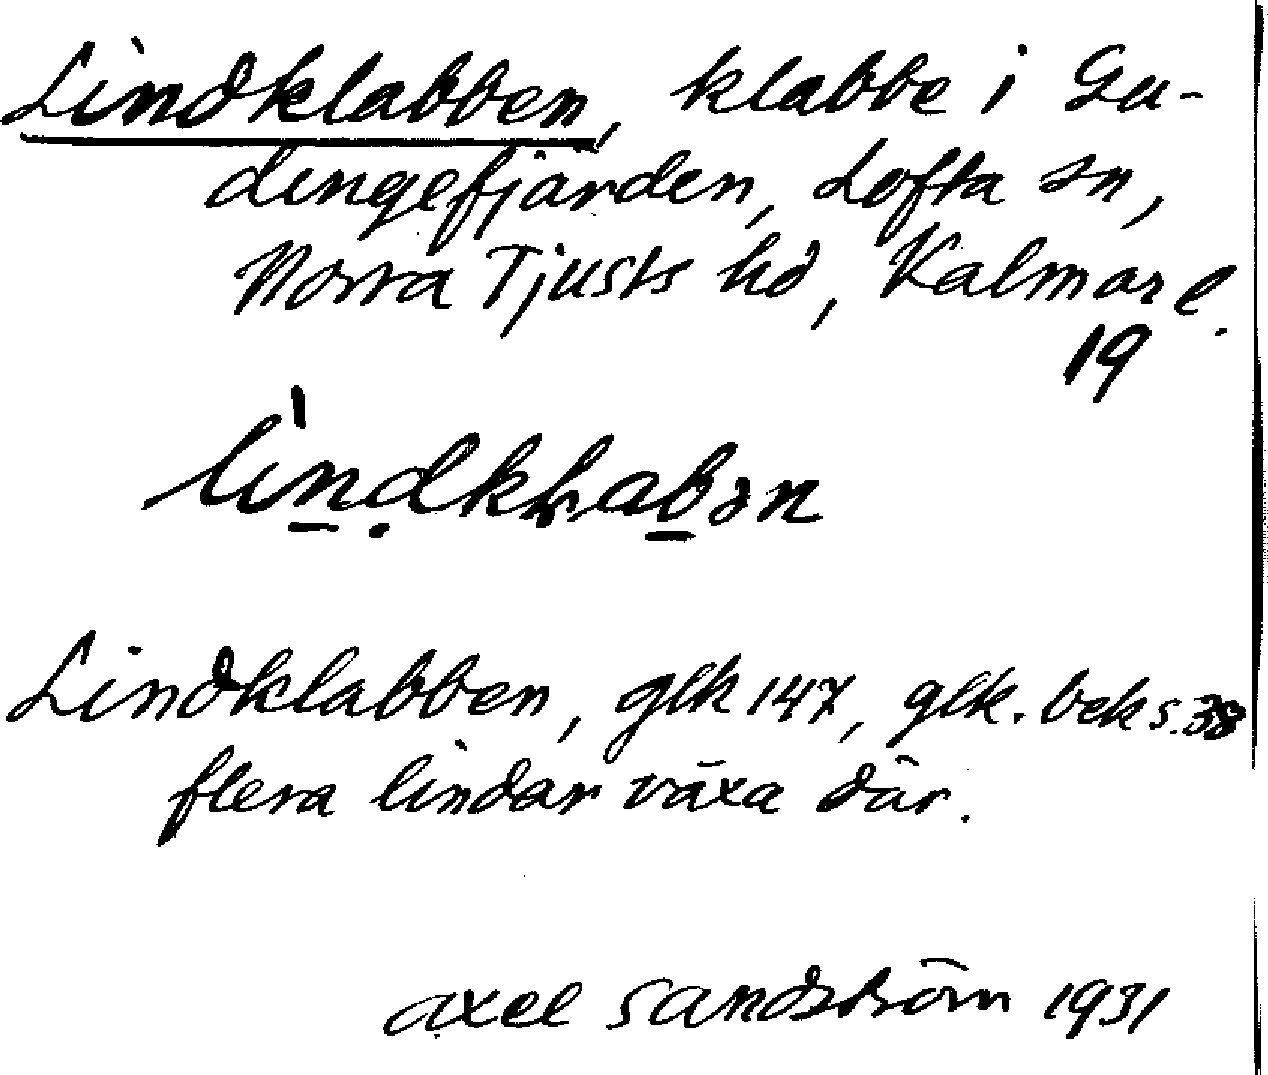 Lindklabben, klabbe i Gu-
dingefjärden, Lofta sn,
Norra Tjusts hd, Kalmar l.
19
Lindklabben, glk 147, glk. bek s. 38
flera lindar växa där.
Axel Sandström 1931